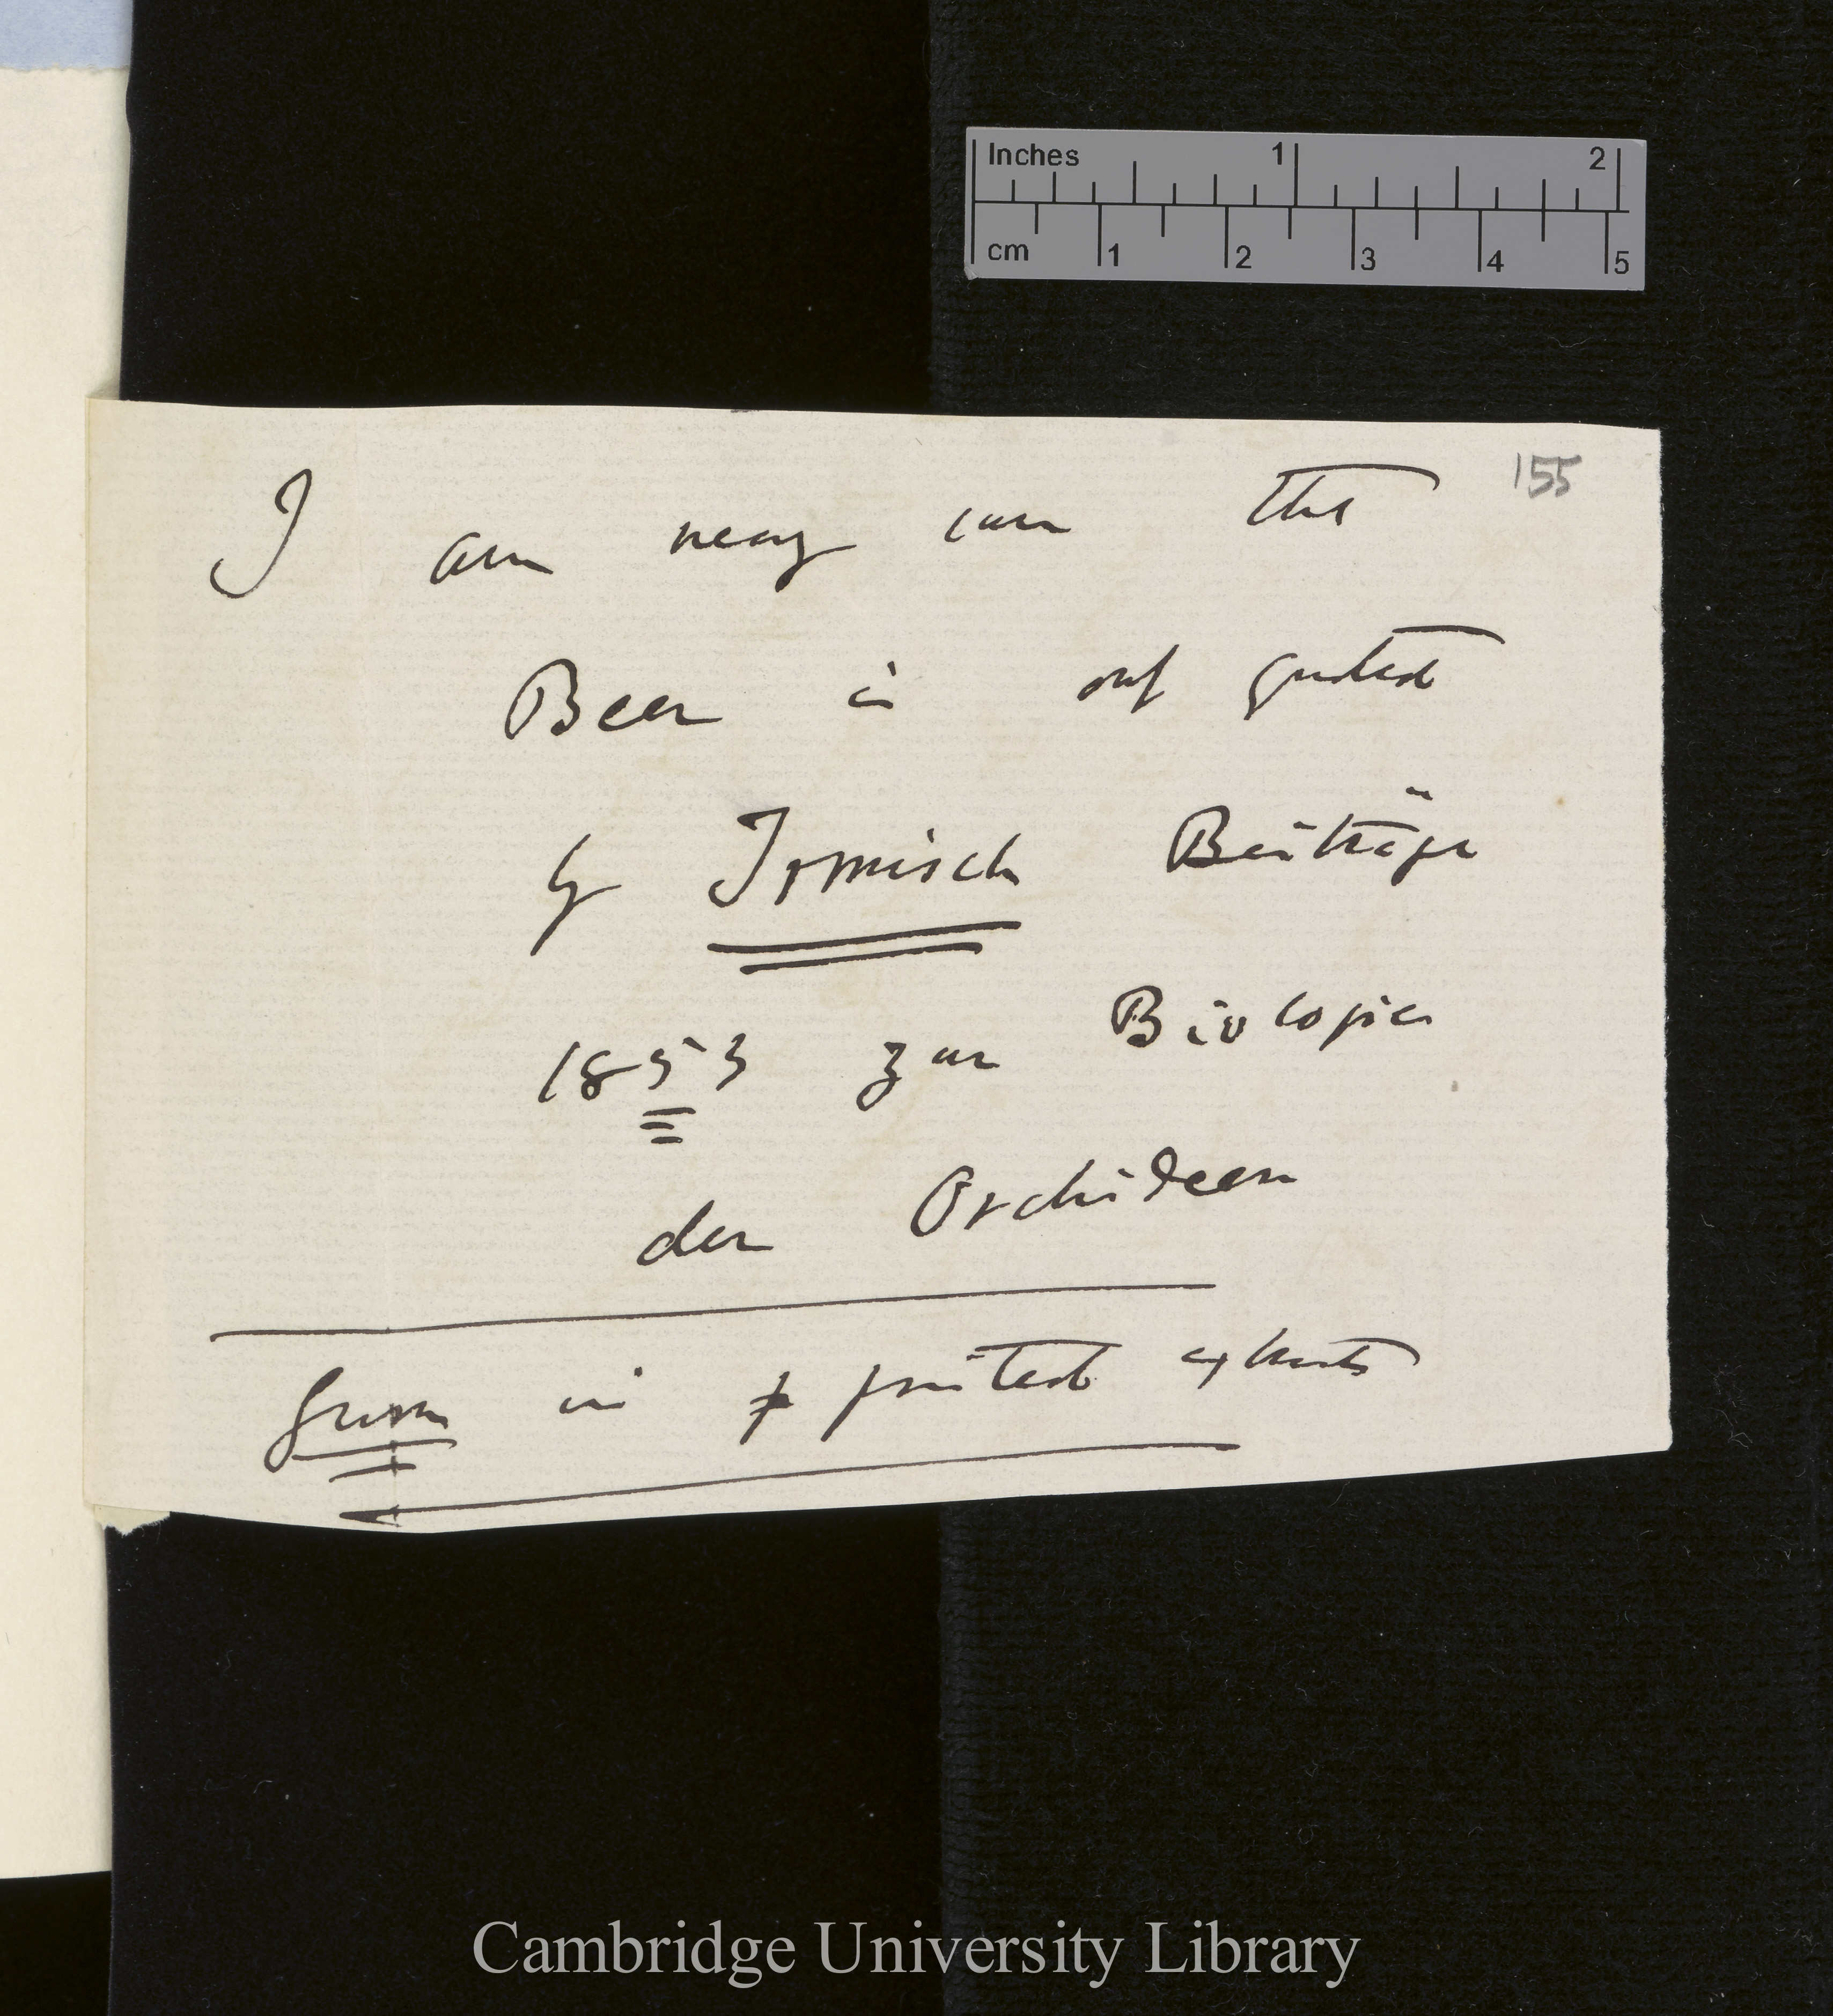 Inches 1 2
cm 1 2 3 4 5
155
I am nearly sure that
Beer is not quoted
by Irmisch Beiträge
1853 zur Biologie
der Orchideen
in printed extracts
Cambridge University Library